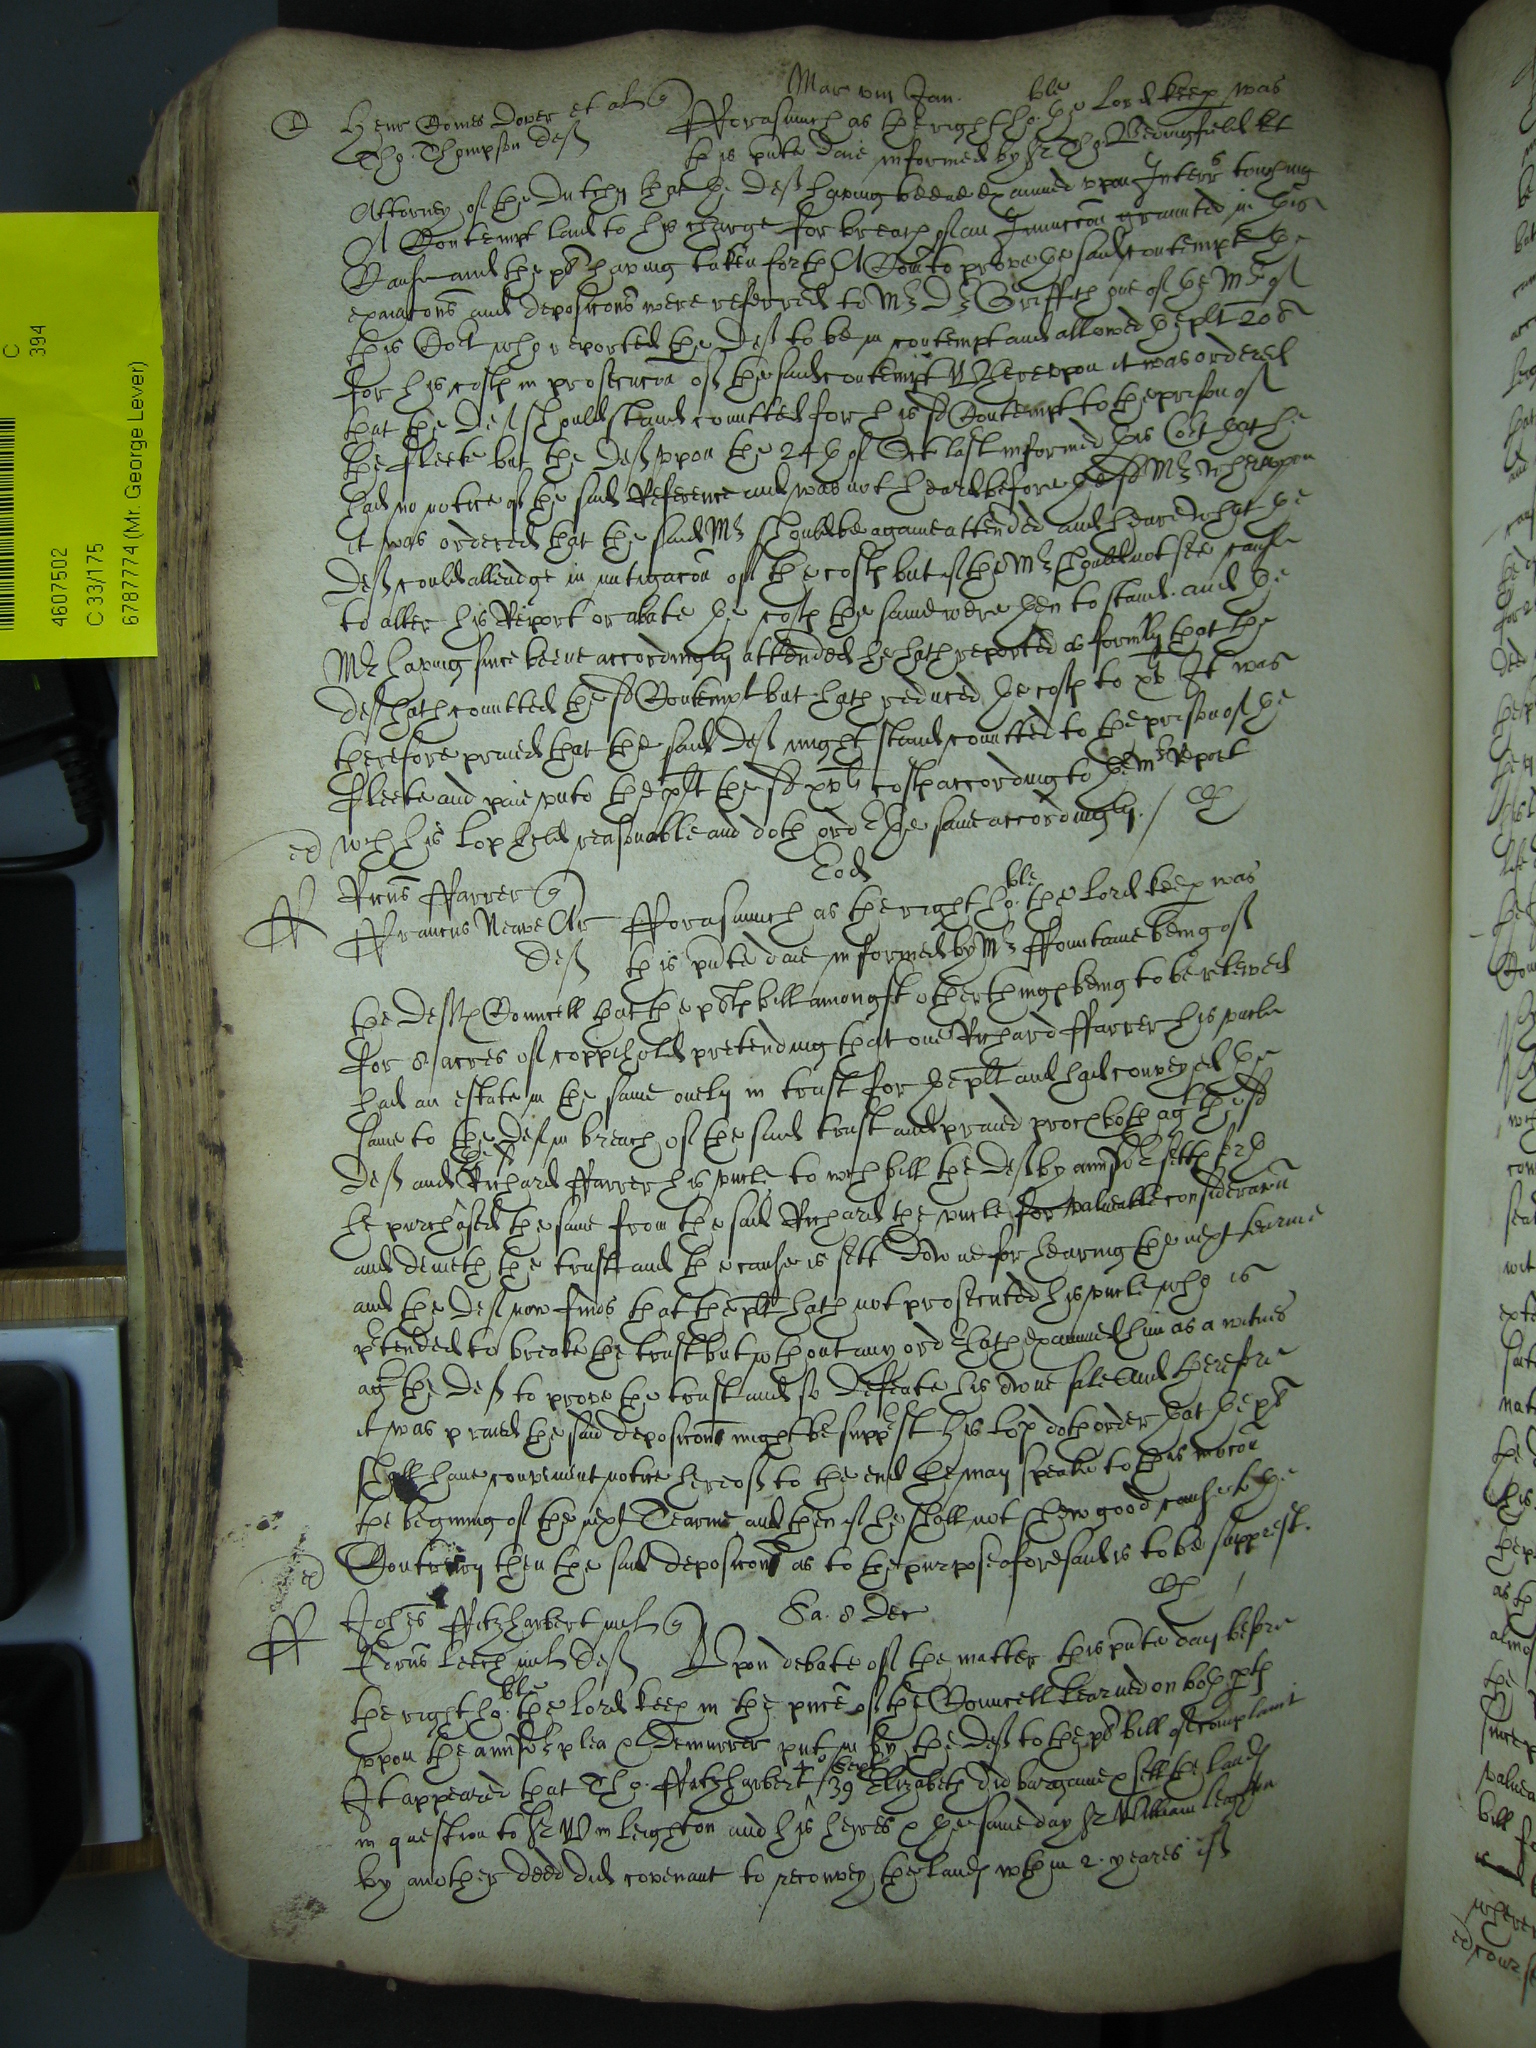 Mar viii Jan.
D Henr Comes Dover et al q
Tho. Thompson Deft
Fforasmuch as the right ho:ble the Lord keep was
this pnte daie informed by Sr Tho. Bedingfield kt
Attorney of the Dutchy that the Deft having beene examined upon Interrs touching
A Contempt laid to his charge for breach of an Iniunccon graunted in this
Cause and the pt having taken forth A Com to prove the said contempt the
exaiacons and deposicons were referred to Mr Dr Griffith one of the Mrs of
this Cort who reported the Deft to be in contempt and allowed the plt 20s
for his costs in prosecucon of the said contempt Whereupon it was ordered
that the Deft should stand comitted for his sd Contempt to the prison of
the fleete but the Deft upon the 24th of Oct last informed this Cort that he
had no notice of the said Reference and was not heard before the sd Mr whereupon
it was ordered that the said Mr should be againe attended and heare what the
Deft could alleadge in mitigacon of the costs but if the Mr should not see cause
to alter his Report or abate the costs the same were then to stand. and the
Mr having since beene accordingly attended he hath reported as formly that the
Deft hath comitted the sd Contempt but hath reduced the costs to It was
therefore praied that the said Deft might stand comitted to the prison of the
fleete and paie unto the plt the sd costs according to the Mrs Report
wch his Lop held reasonable and doth ordr the same accordingly. /
ed
Eod
ff Ricus Ffarrer q
Ffrancus Neave Ar
Deft
Fforasmuch as the right ho:ble the Lord keep was
this pnte daie informed by Mr Ffountaine being of
the Defts Councell that the pts bill amongst other things being to be releived
for 8 acres of coppihold pretending that one Richard Ffarrer his uncle
had an estate in the same onely in trust for the plt and had conveyed the
same to the Deft in breach of the said trust and praied proces both agt the sd
Deft and the sd Richard Ffarrer his uncle to wch bill the Deft by answr setts forth
he purchased the same from the said Richard the uncle for valueable consideracon
and denieth the trust and the cause is sett downe for hearing the next tearme
and the Deft now finds that the plt hath not prosecuted his uncle who is
ptended to breake the trust but without any ordr hath examined him as a witnes
agt the Deft to prove the trust and so defeate his owne sale And therefore
it was praied the said deposicons might be supprest his Lop doth order that the pt
shall have convenient notice hereof to the end he may speake to this mocon
the begining of the next Tearme and then if he shall not shew good cause to the
Contrary then the said deposicons as to the purpose aforesaid is to be supprest.
ed
Sa. 8 Dec
ff Johes Ffitzharbert mil q
Leech mil Deft
Upon debate of the matter this pnte day before
the right ho:ble the Lord keep in the pnce of the Councell learned on both pts
upon the answr plea & Demurrer put in by the Deft to the pts bill of complaint
It appeared that Tho. Ffitzharbert 4o Sept 39 Elizabeth did bargaine & sell the lands
in question to Sr Wm Leighton and his heires & the same day Sr William Leighton
by another deed did covenant to reconvey the lands within 2. yeares if
4607502
C 33/175
6787774 (Mr. George Lever)
C
394